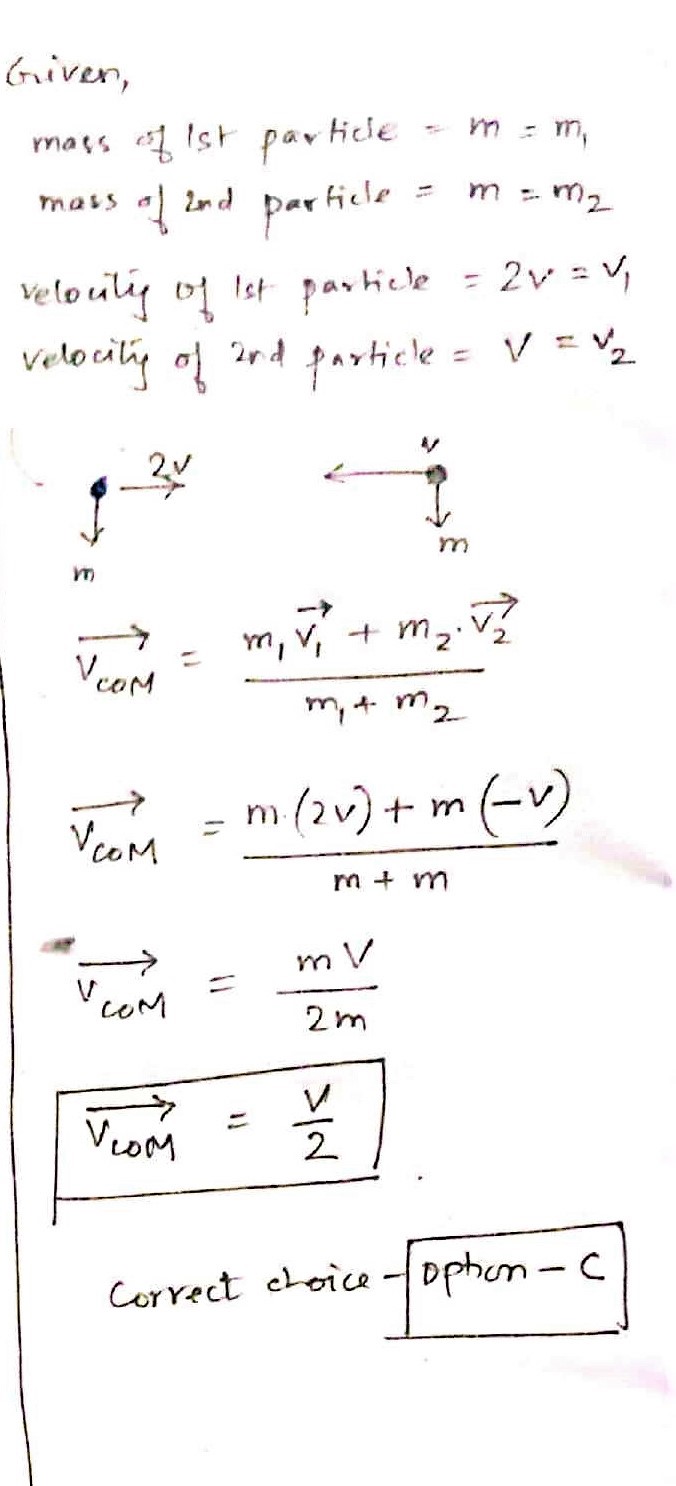 Given,
mass of 1st particle = m = m₁
mass of 2nd particle = m = m₂
velocity of 1st particle = 2v = v₁
velocity of 2nd particle = v = v₂
2v v
m m
V⃗COM = (m₁v⃗₁ + m₂.v⃗₂) / (m₁ + m₂)
V⃗COM = (m.(2v) + m(-v)) / (m + m)
V⃗COM = mV / 2m
V⃗COM = V / 2
Correct choice - Option - C